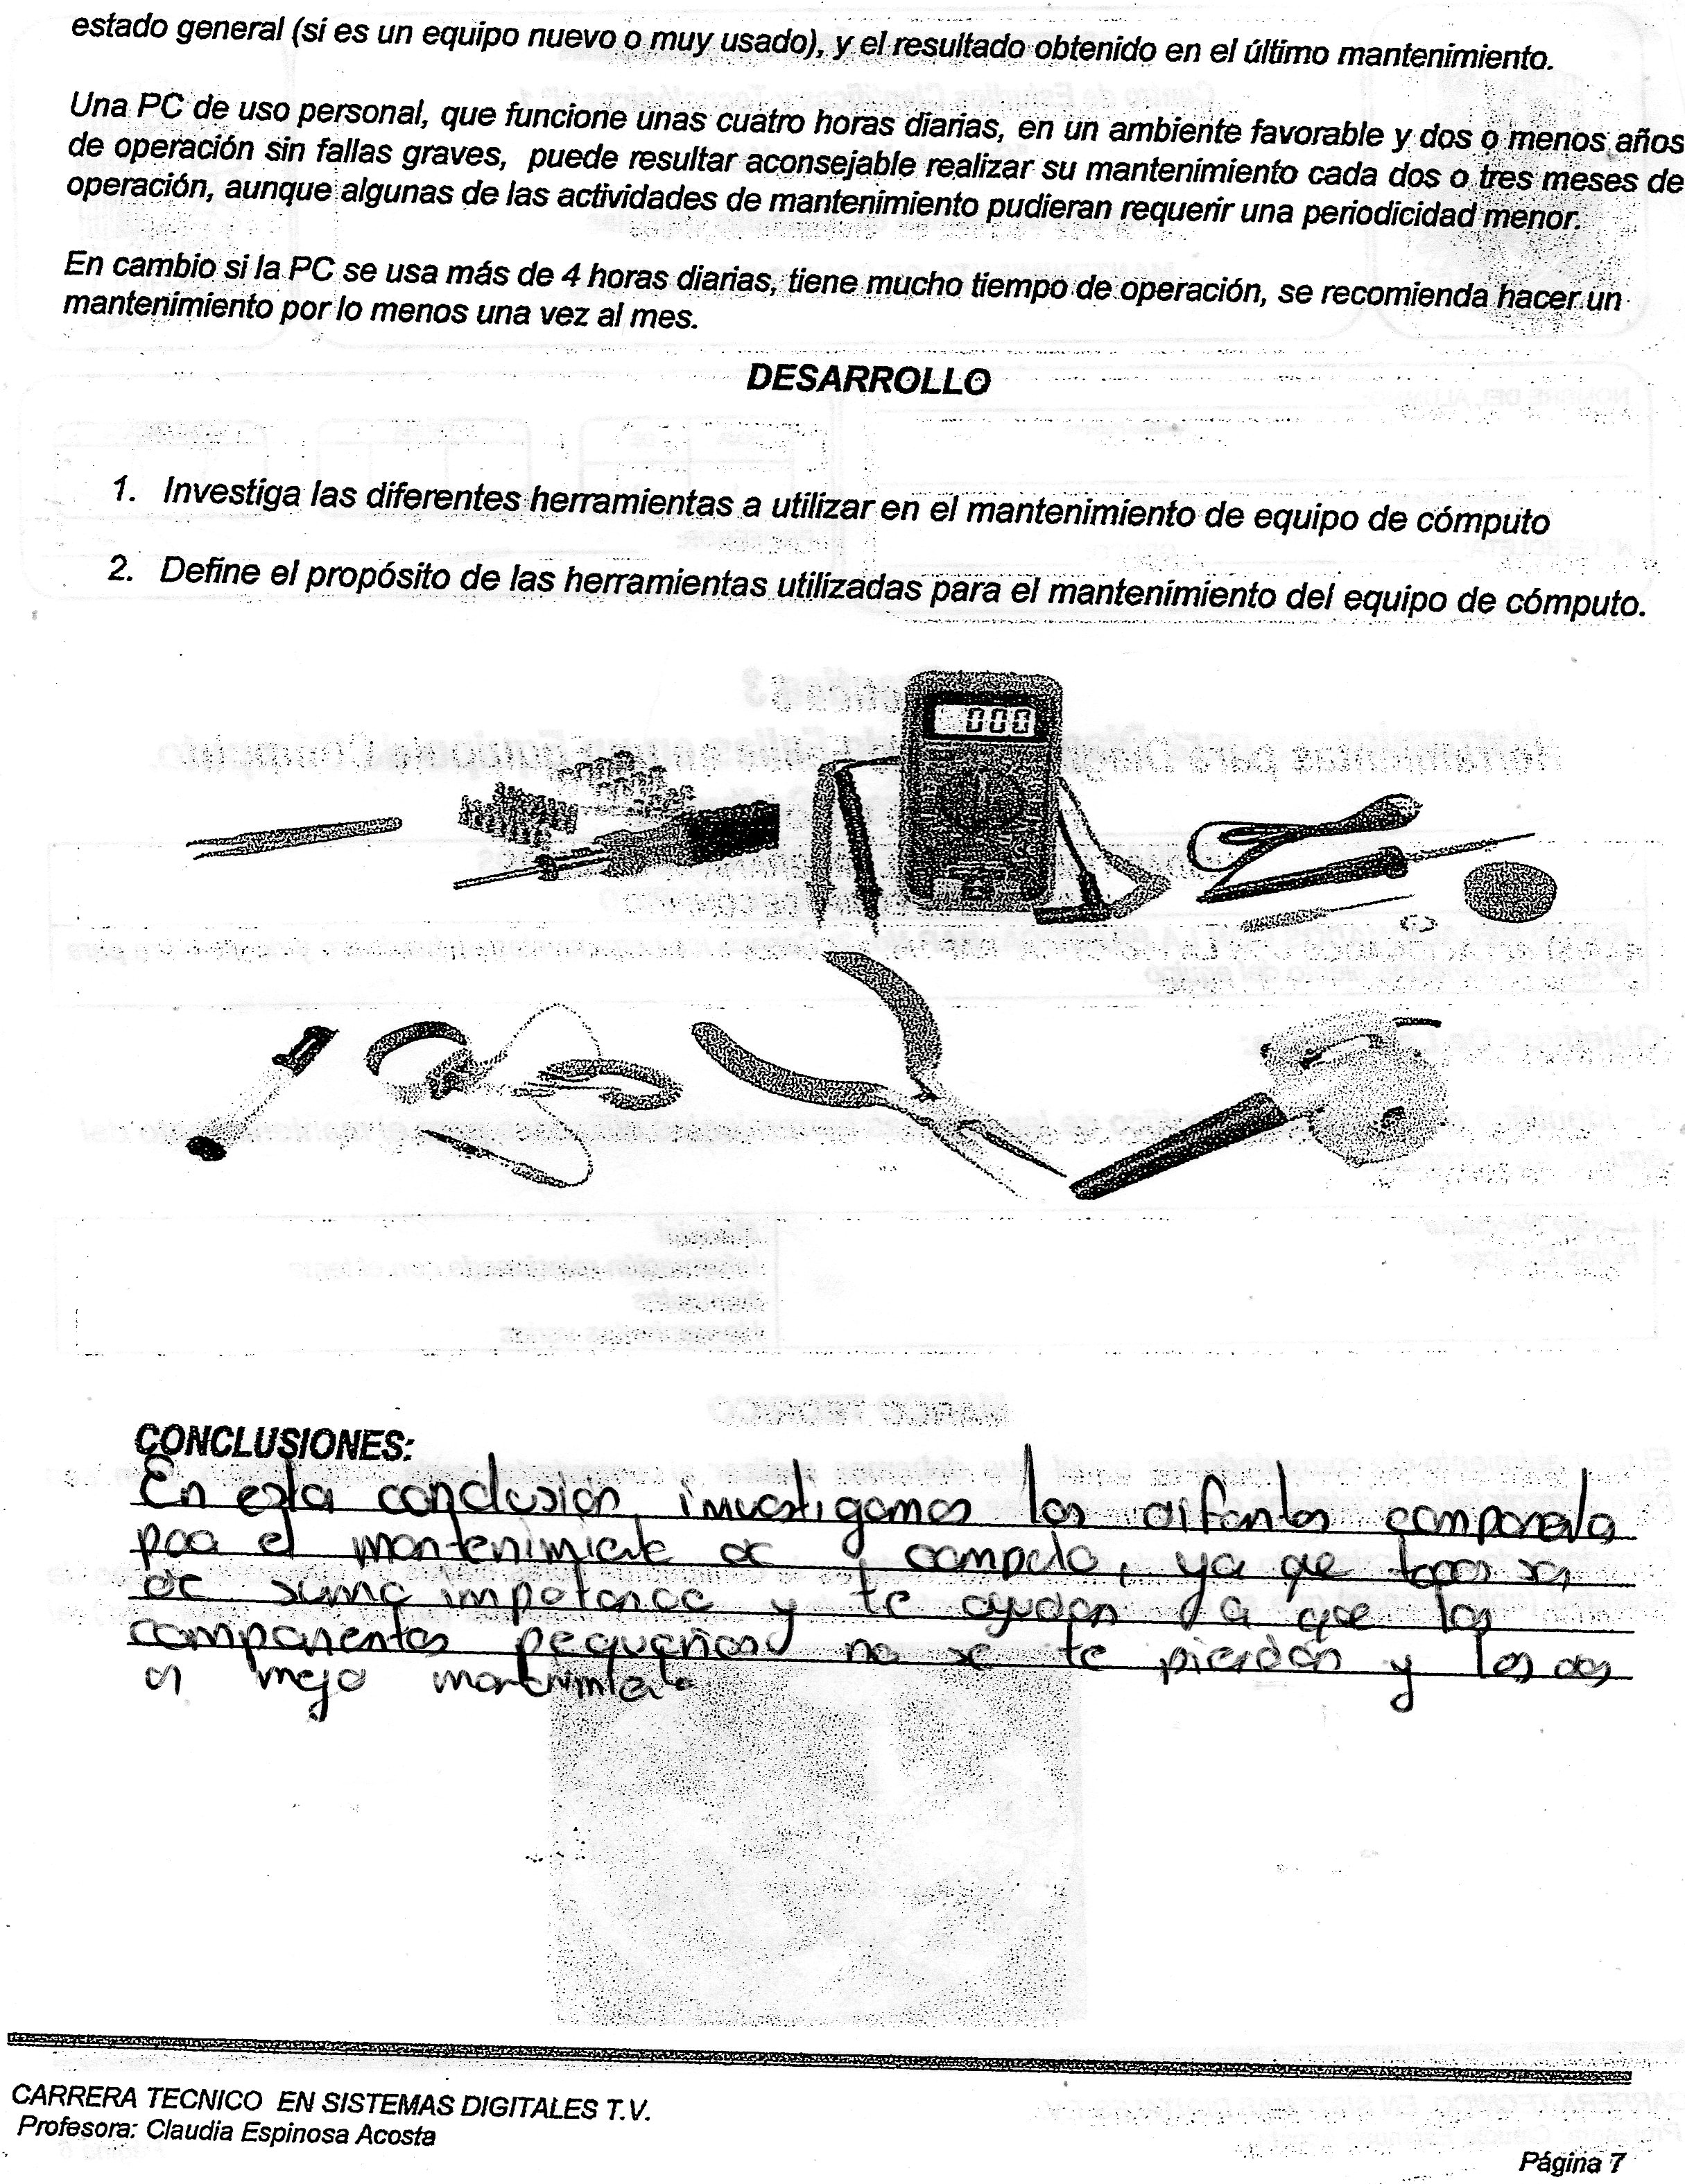 estado general (si es un equipo nuevo o muy usado), y el resultado obtenido en el último mantenimiento.
Una PC de uso personal, que funcione unas cuatro horas diarias, en un ambiente favorable y dos o menos años
de operación sin fallas graves, puede resultar aconsejable realizar su mantenimiento cada dos o tres meses de
operación, aunque algunas de las actividades de mantenimiento pudieran requerir una periodicidad menor.
En cambio si la PC se usa más de 4 horas diarias, tiene mucho tiempo de operación, se recomienda hacer un
mantenimiento por lo menos una vez al mes.
DESARROLLO
1. Investiga las diferentes herramientas a utilizar en el mantenimiento de equipo de cómputo
2. Define el propósito de las herramientas utilizadas para el mantenimiento del equipo de cómputo.
000
CONCLUSIONES:
En esta conclusión investigamos los
el de computo, ya que
de suma y te ayudan ya que los
componentes pequeños no se te pierdan y
CARRERA TECNICO EN SISTEMAS DIGITALES T.V.
Profesora: Claudia Espinosa Acosta
Página 7